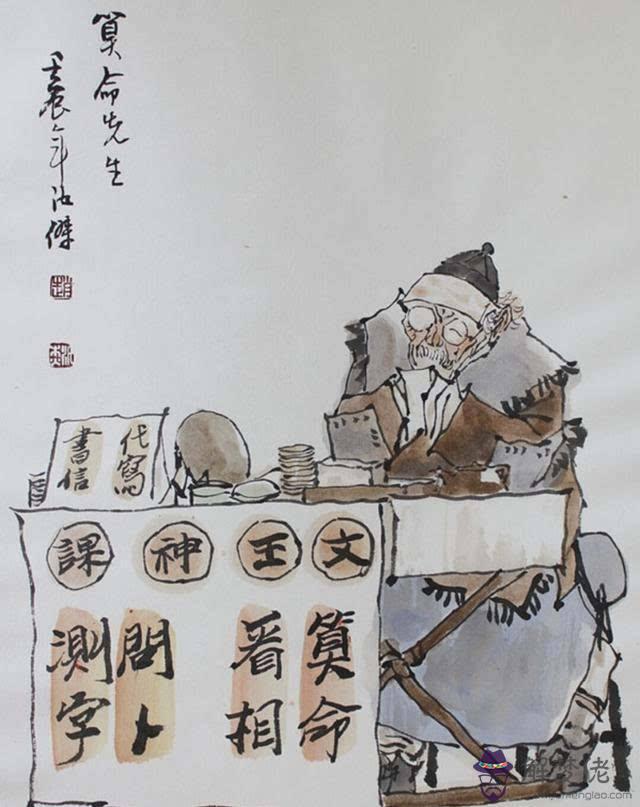 算命先生
壬辰年傑
代寫
書信
文王神課
算命
看相
問卜
測字
解梦老